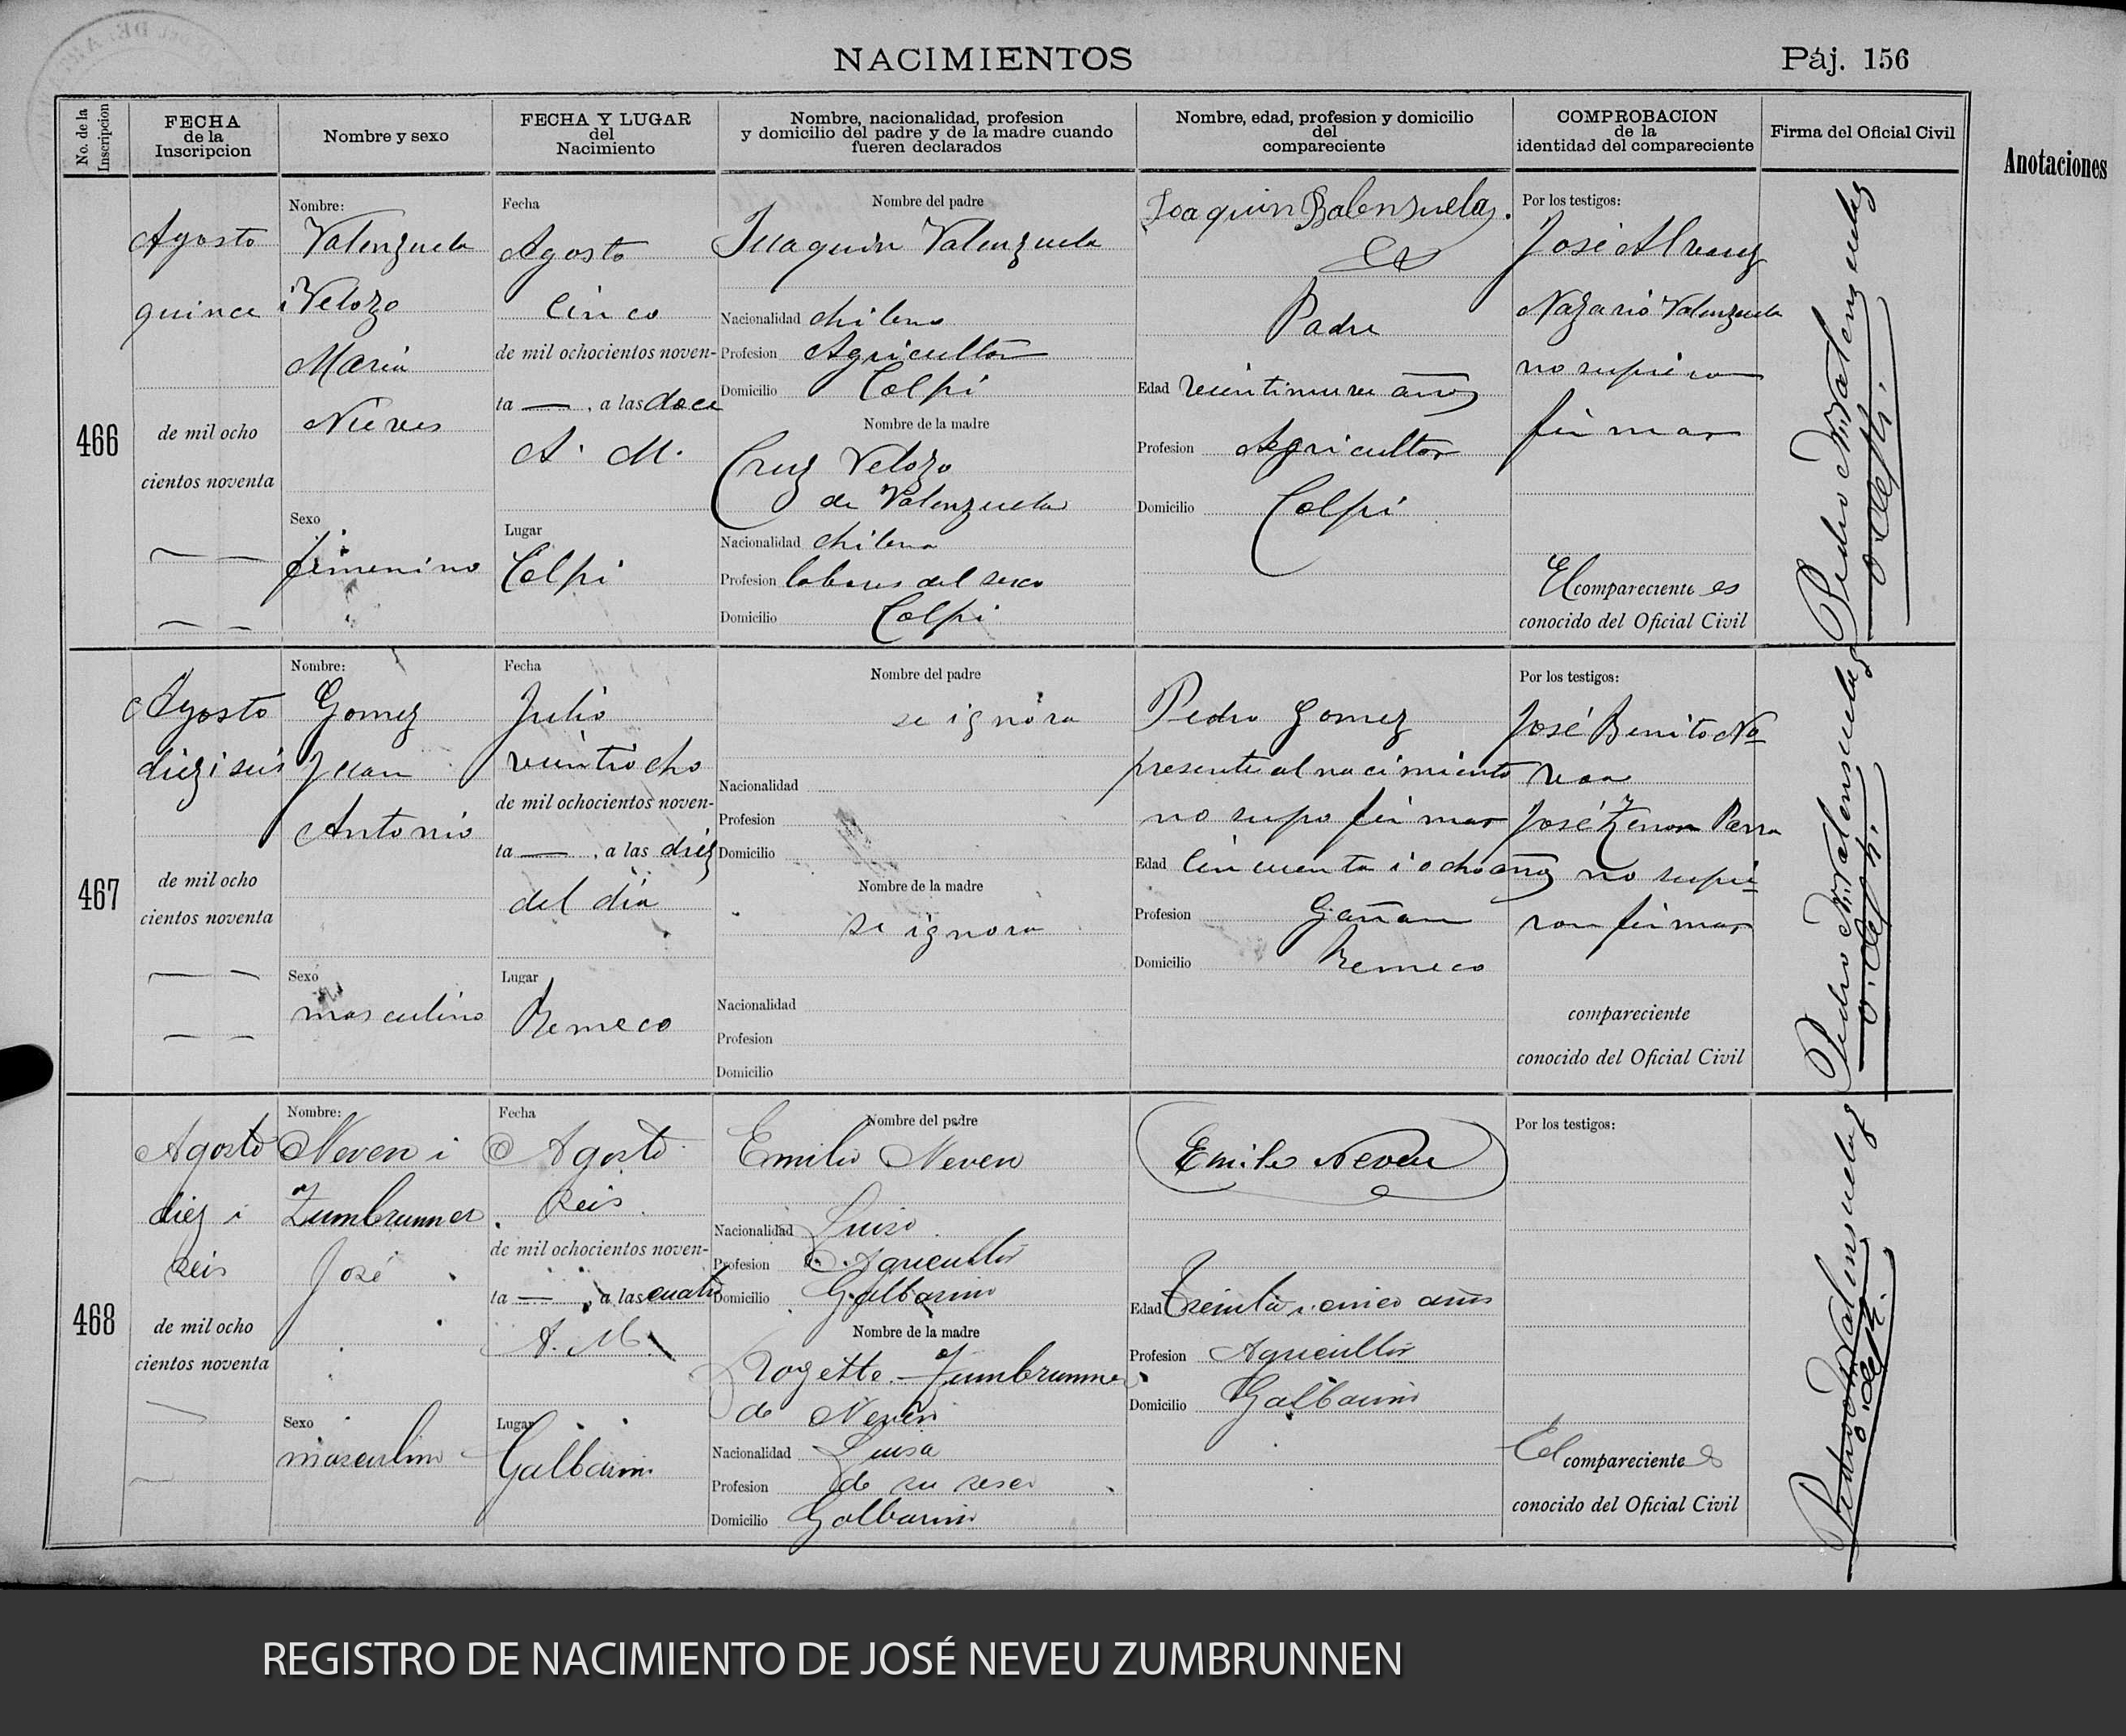 NACIMIENTOS
Páj. 156
No. de la Inscripcion
FECHA
de la
Inscripcion
Nombre y sexo
FECHA Y LUGAR
del
Nacimiento
Nombre, nacionalidad, profesion
y domicilio del padre y de la madre cuando
fueren declarados
Nombre, edad, profesion y domicilio
del
compareciente
COMPROBACION
de la
identidad del compareciente
Firma del Oficial Civil
Anotaciones
466
Agosto
quince
de mil ocho
cientos noventa
Nombre:
Valenzuela
i Velozo
Maria
Nieves
Sexo
femenino
Fecha
Agosto
Cinco
de mil ochocientos noven-
ta — , a las doce
A. M.
Lugar
Colpi
Nombre del padre
Juaquin Valenzuela
Nacionalidad chileno
Profesion Agricultor
Domicilio Colpi
Nombre de la madre
Cruz Velozo
de Valenzuela
Nacionalidad chilena
Profesion labores del sexo
Domicilio Colpi
Joaquin Balenzuela.
Padre
Edad veintinueve años
Profesion Agricultor
Domicilio Colpi
Por los testigos:
José Alvarez
Nazario Valenzuela
no supieron
firmar
El compareciente es
conocido del Oficial Civil
467
Agosto
diez i seis
de mil ocho
cientos noventa
Nombre:
Gomez
Juan
Antonio
Sexo
masculino
Fecha
Julio
veintiocho
de mil ochocientos noven-
ta — , a las diez
del dia
Lugar
Remeco
Nombre del padre
se ignora
Nacionalidad
Profesion
Domicilio
Nombre de la madre
se ignora
Nacionalidad
Profesion
Domicilio
Pedro Gomez
presente al nacimiento
no supo firmar
Edad Cincuenta i ocho años
Profesion Gañan
Domicilio Remeco
Por los testigos:
José Benito No
José Zenon Parra
no supie-
ron firmar
compareciente
conocido del Oficial Civil
468
Agosto
diez i
seis
de mil ocho
cientos noventa
Nombre:
Neven i
Zumbrunner
José
Sexo
masculino
Fecha
Agosto
Seis
de mil ochocientos noven-
ta — , a las cuatro
A. M.
Lugar
Galbarino
Nombre del padre
Emilio Neven
Nacionalidad Suizo
Profesion Agricultor
Domicilio Galbarino
Nombre de la madre
Rozette Zumbrunner
de Neven
Nacionalidad Suisa
Profesion de su sexo
Domicilio Galbarino
Emile Neveu
Edad Treinta i cinco años
Profesion Agricultor
Domicilio Galbarino
Por los testigos:
El compareciente es
conocido del Oficial Civil
REGISTRO DE NACIMIENTO DE JOSÉ NEVEU ZUMBRUNNEN